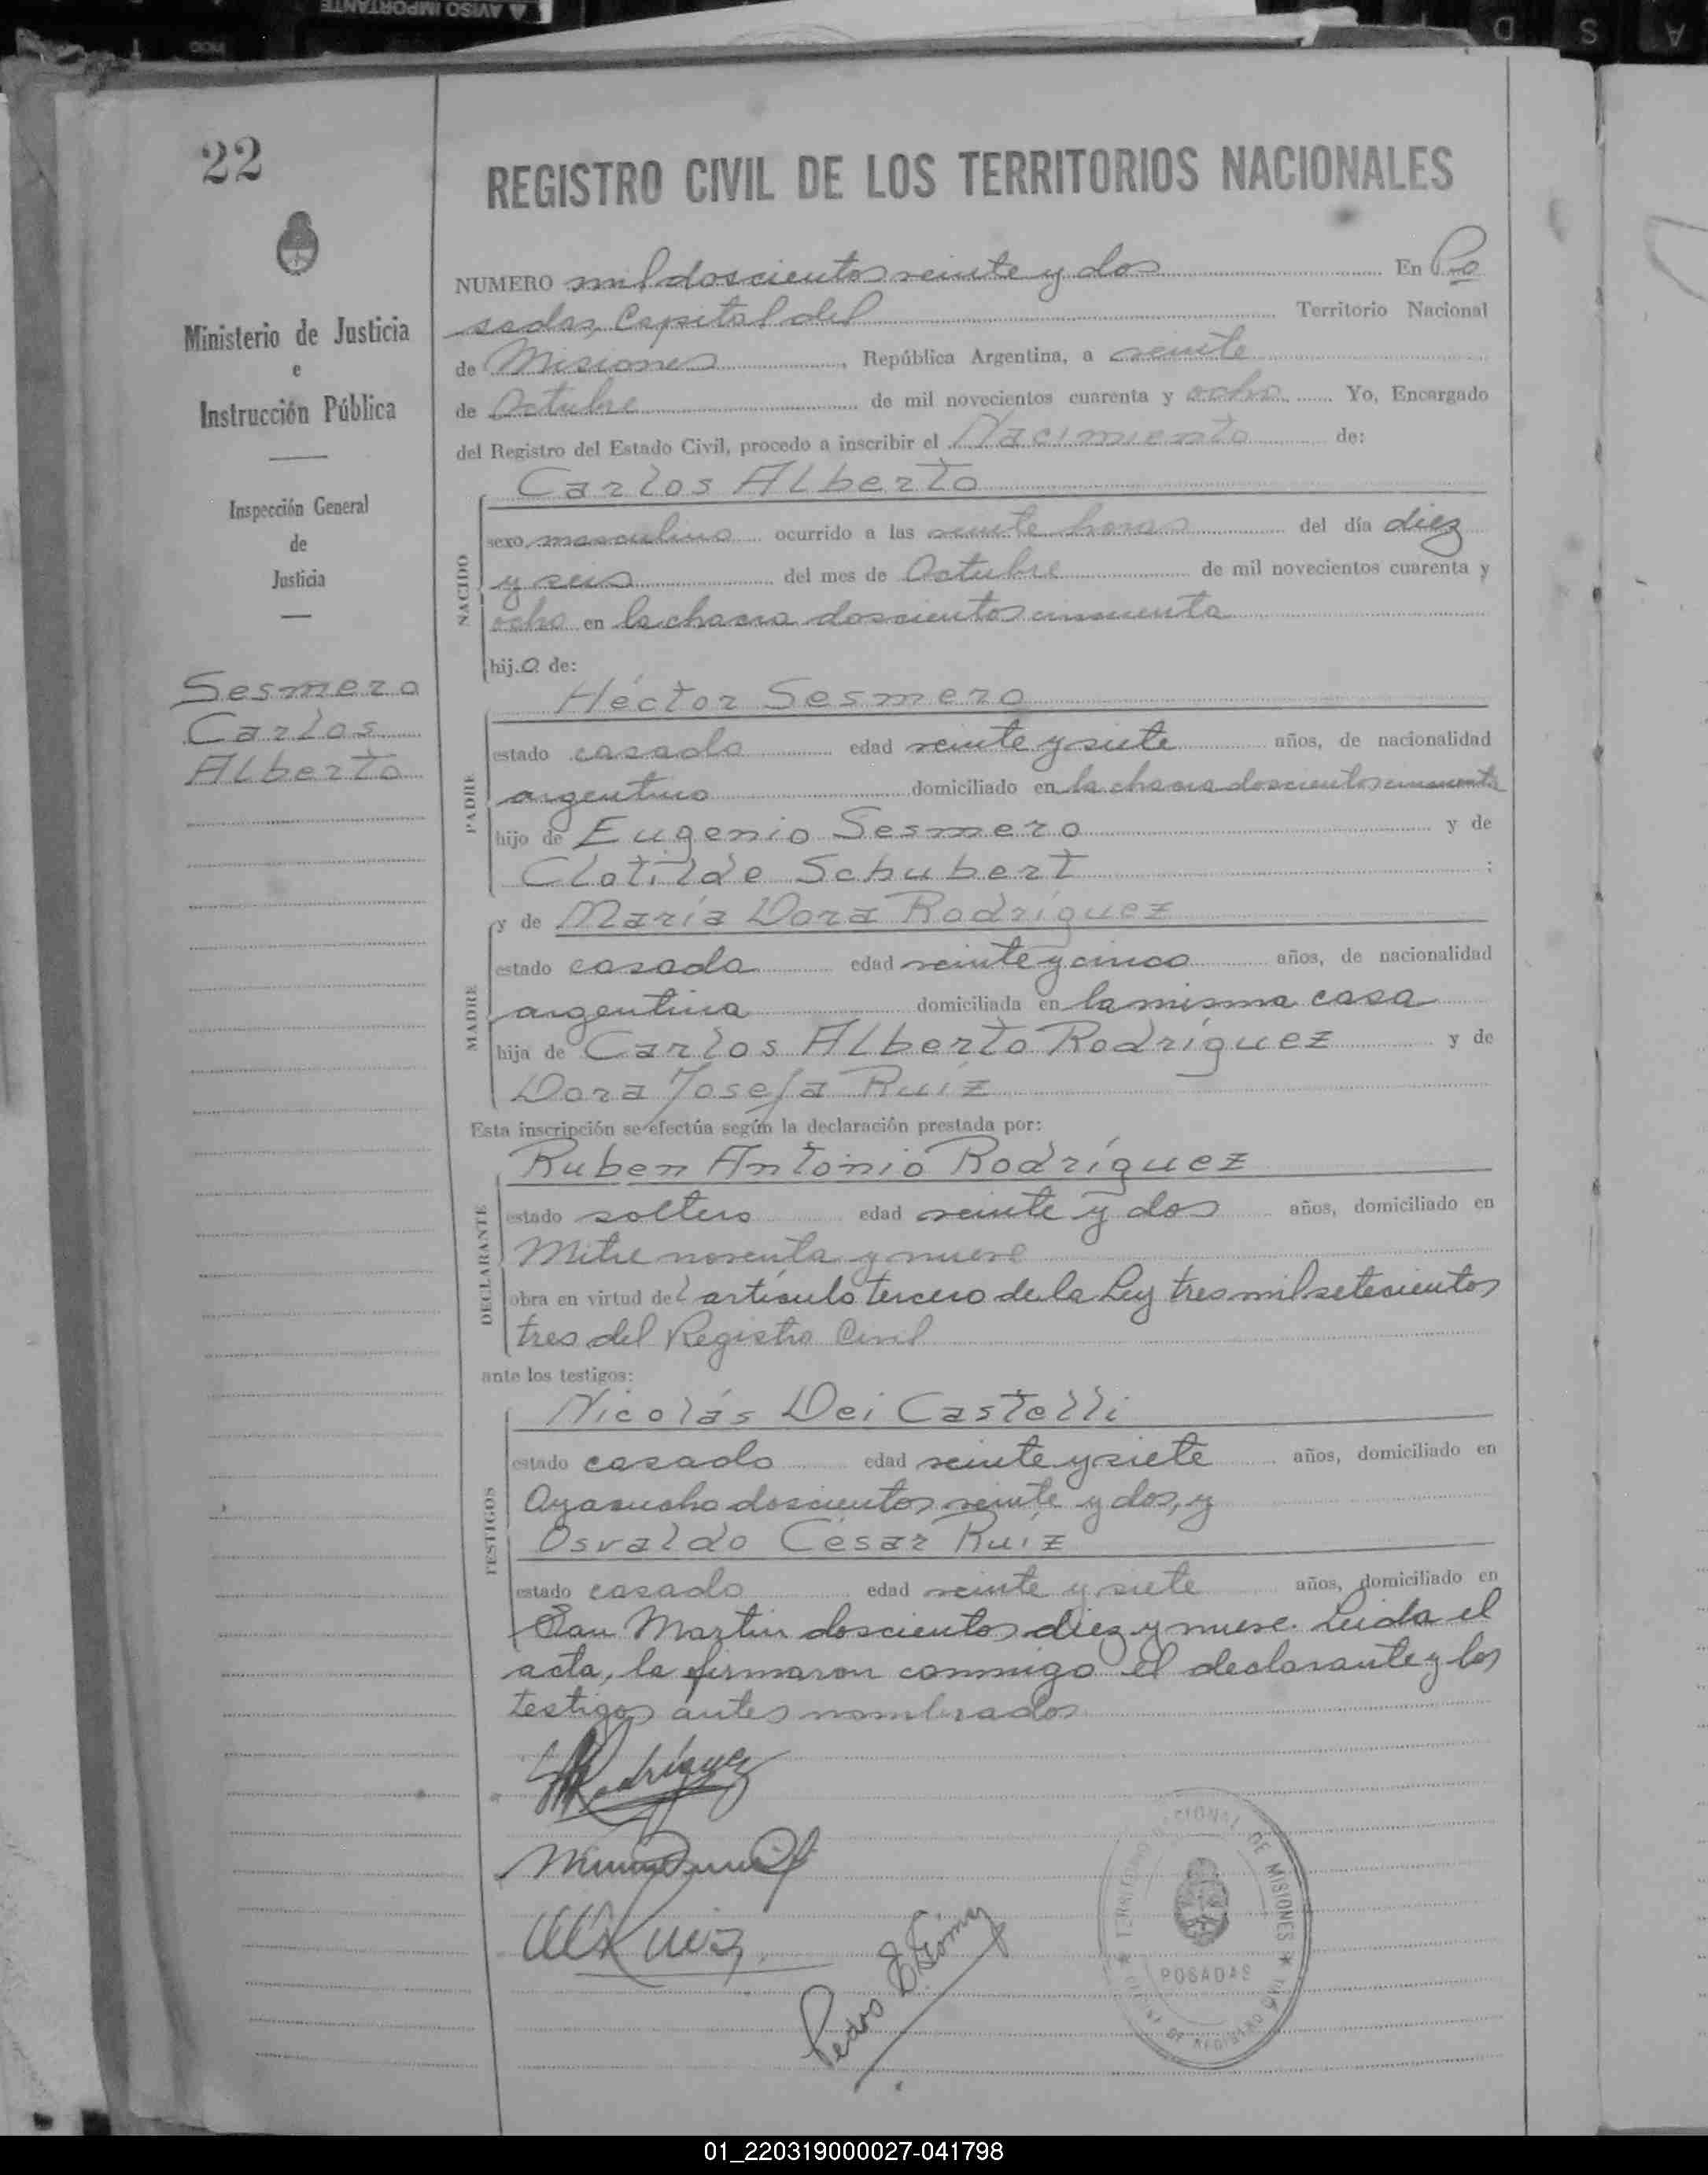 AVISO IMPORTANTE
A S D
22
REGISTRO CIVIL DE LOS TERRITORIOS NACIONALES
Ministerio de Justicia
e
Instrucción Pública
Inspección General
de
Justicia
Sesmero
Carlos
Alberto
NUMERO mil doscientos veinte y dos En Po
sadas, Capital del Territorio Nacional
de Misiones, República Argentina, a veinte
de Octubre de mil novecientos cuarenta y ocho. Yo, Encargado
del Registro del Estado Civil, procedo a inscribir el Nacimiento de:
Carlos Alberto
NACIDO
sexo masculino ocurrido a las veinte horas del día diez
y seis del mes de Octubre de mil novecientos cuarenta y
ocho en la chacra doscientos cincuenta
hijo de:
Héctor Sesmero
PADRE
estado casado edad veinte y siete años, de nacionalidad
argentino domiciliado en la chacra doscientos cincuenta
hijo de Eugenio Sesmero y de
Clotilde Schubert;
y de María Dora Rodríguez
MADRE
estado casada edad veinte y cinco años, de nacionalidad
argentina domiciliada en la misma casa
hija de Carlos Alberto Rodríguez y de
Dora Josefa Ruíz
Esta inscripción se efectúa según la declaración prestada por:
Ruben Antonio Rodríguez
DECLARANTE
estado soltero edad veinte y dos años, domiciliado en
Mitre noventa y nueve
obra en virtud del artículo tercero de la Ley tres mil setecientos
tres del Registro Civil
ante los testigos:
Nicolás Dei Castelli
TESTIGOS
estado casado edad veinte y siete años, domiciliado en
Ayacucho doscientos veinte y dos, y
Osvaldo César Ruíz
estado casado edad veinte y siete años, domiciliado en
San Martin doscientos diez y nueve. Leida el
acta, la firmaron conmigo el declarante y los
testigos antes nombrados
Rodríguez
Ruiz
Pedro E. Gómez
TERRITORIO NACIONAL DE MISIONES
POSADAS
01_220319000027-041798